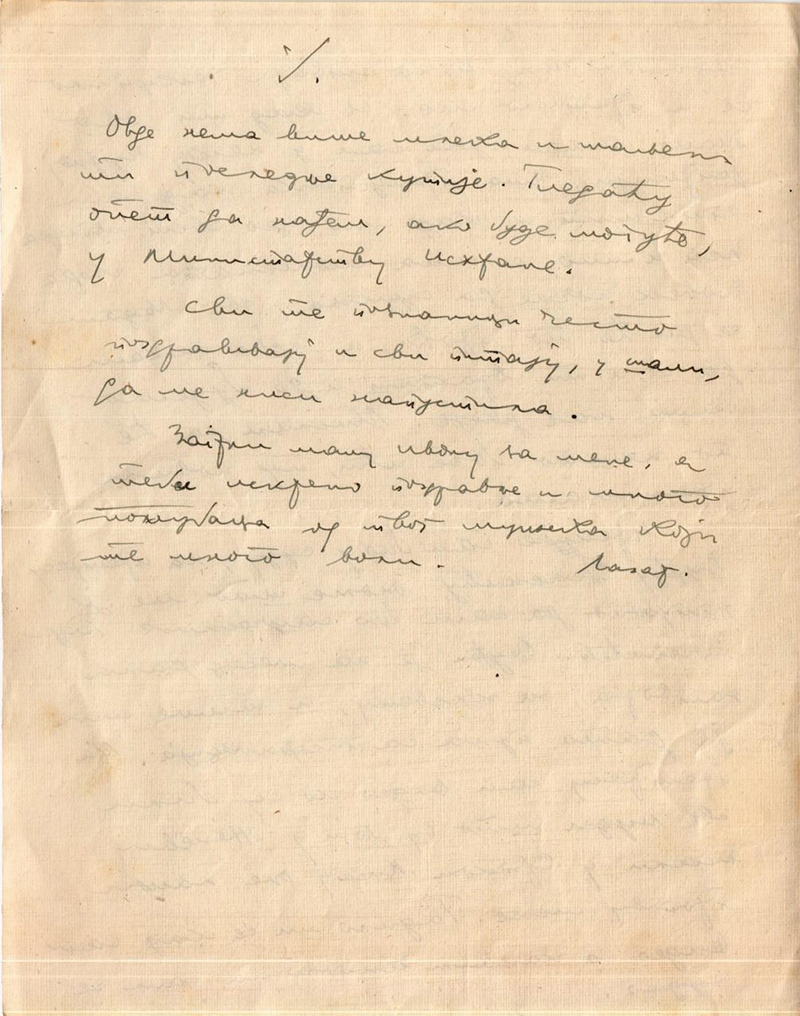 ·/.
Овде нема више млека и шаљем
ти последње кутије. Гледаћу
опет да нађем, ако буде могуће,
у Министарству Исхране.
Сви те познаници често
поздрављају и сви питају, у шали,
да ме ниси напустила.
Загрли малу Ивону за мене, а
теби искрено поздравље и много
пољубаца од твог мужића који
те много воли. Лазар.